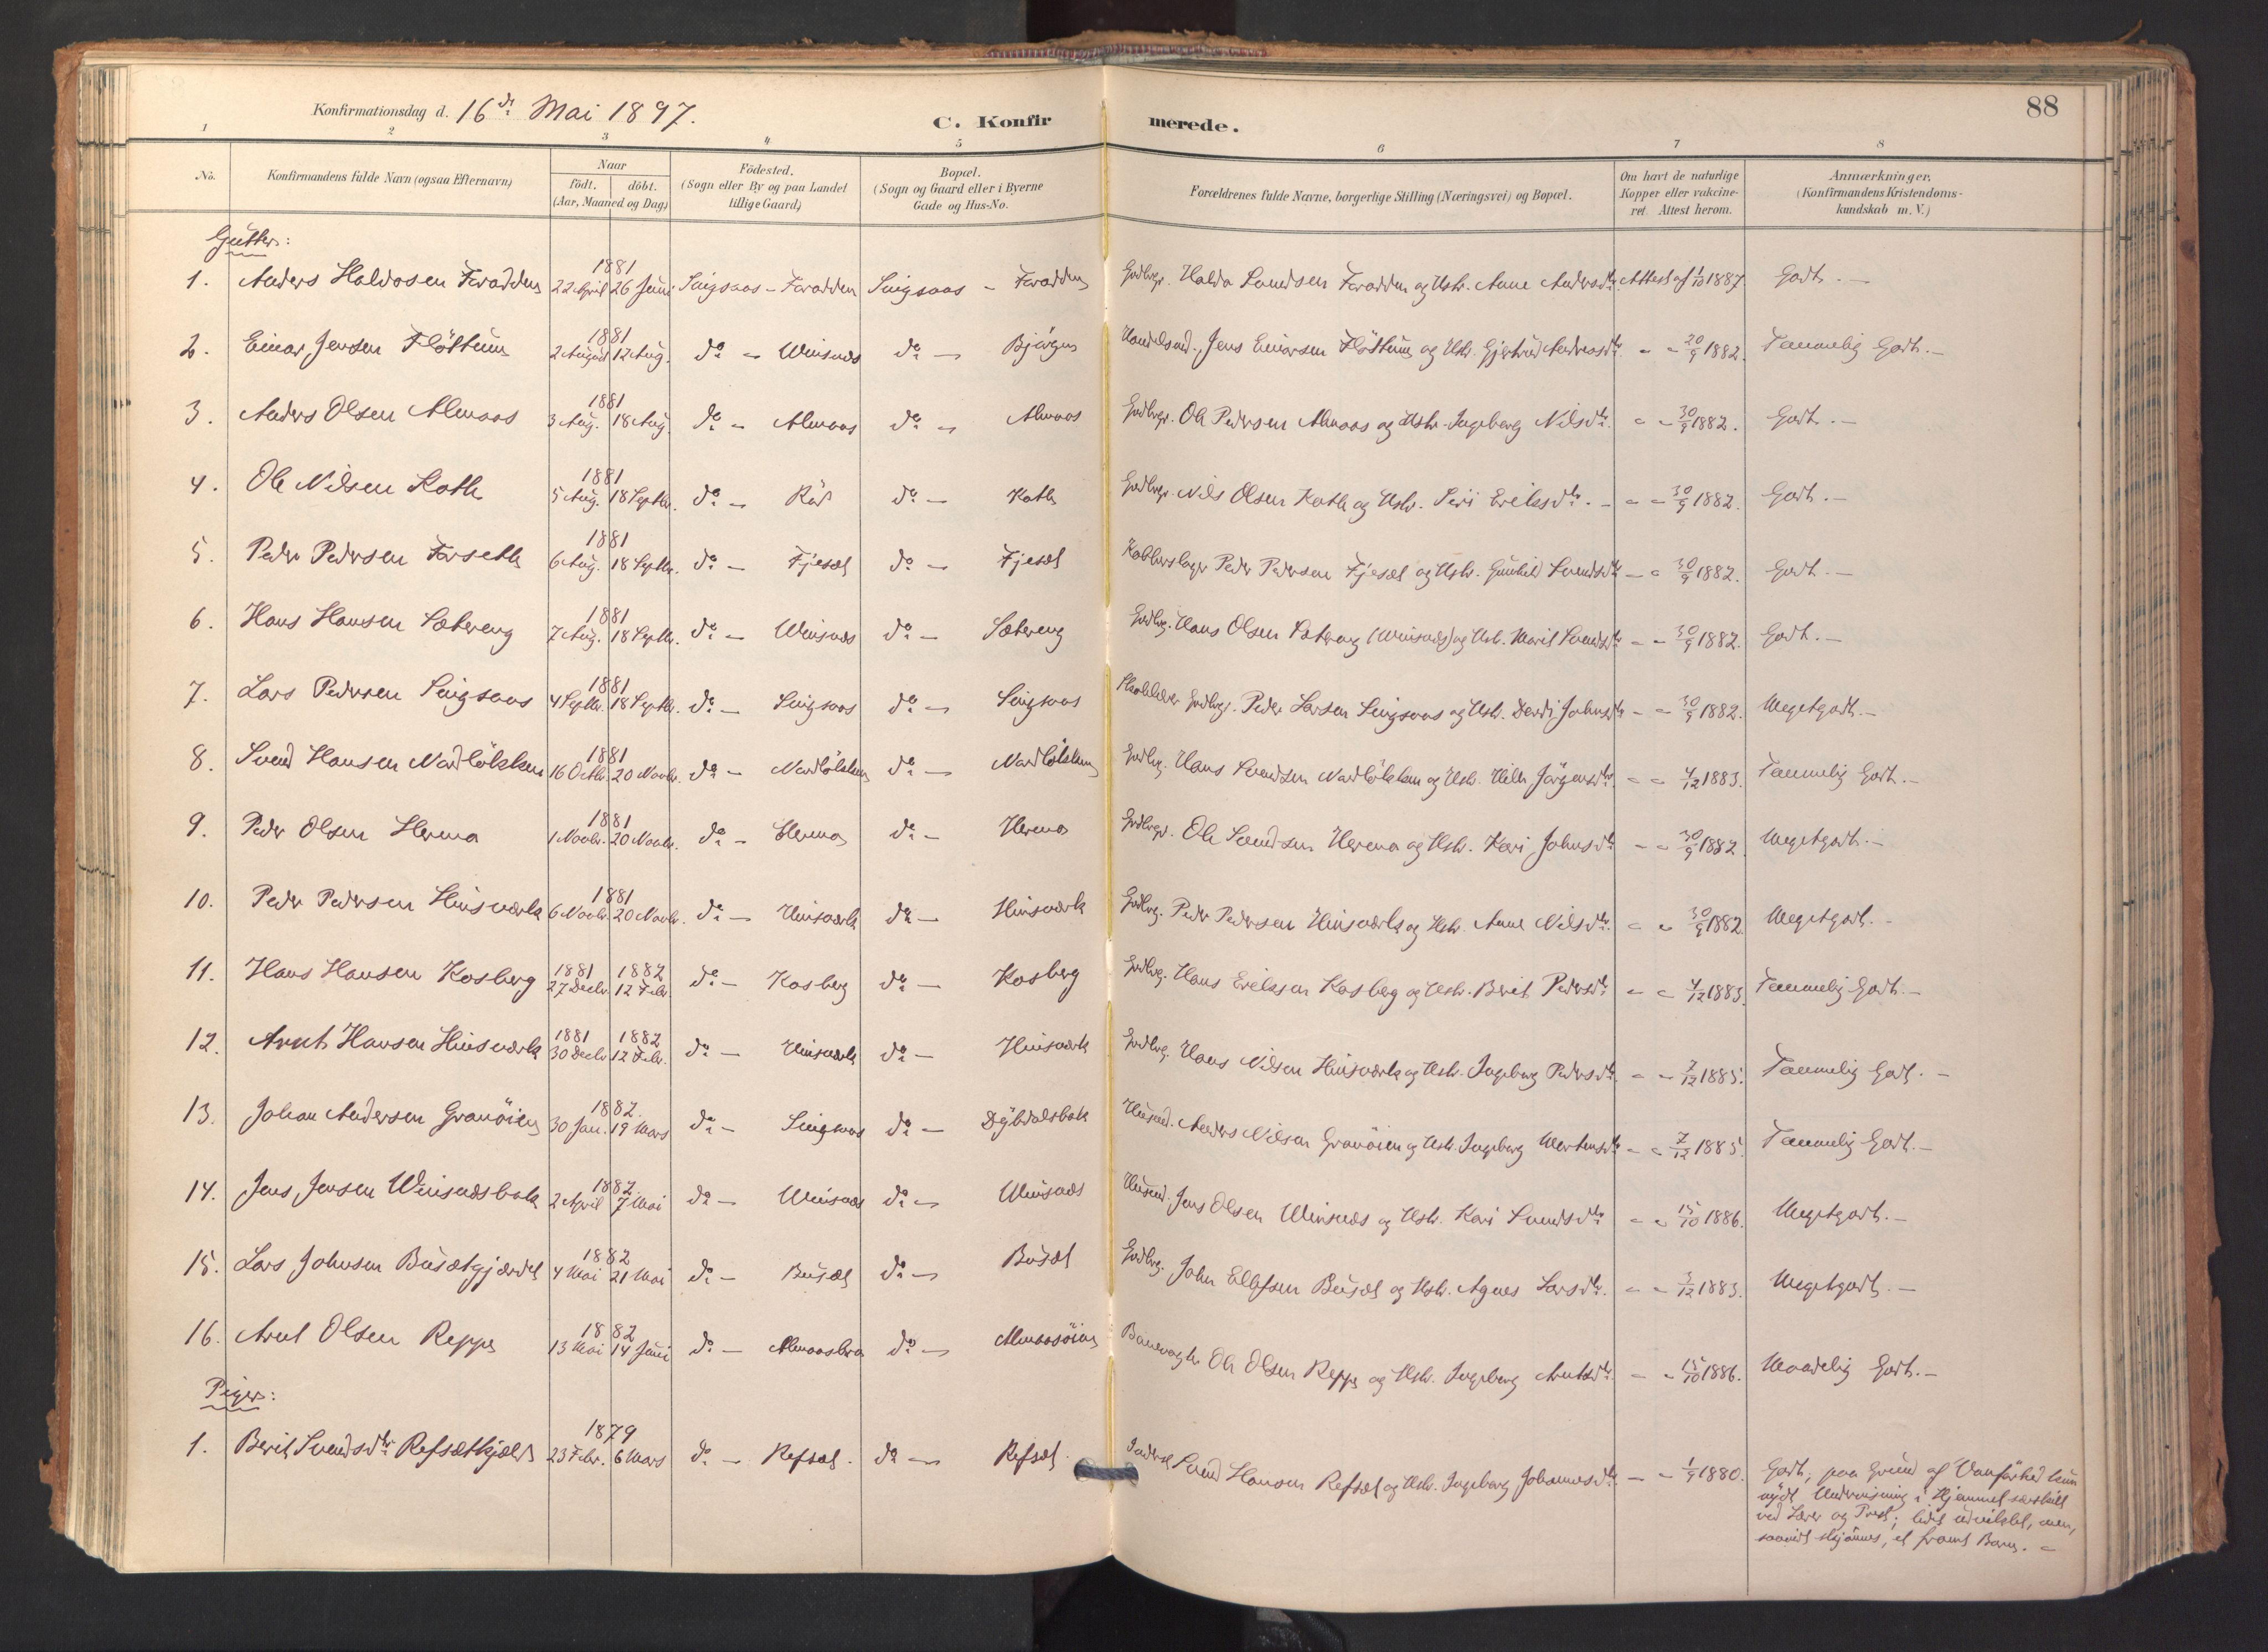 Konfirmationsdag d. 16de Mai 1897.
C. Konfirmerede.
88
1 2 3 4 5 6 7 8
No. Konfirmandens fulde Navn (ogsaa Efternavn) Naar födt. döbt. (Aar, Maaned og Dag) Födested. (Sogn eller By og paa Landet tillige Gaard) Bopæl. (Sogn og Gaard eller i Byerne Gade og Hus-No. Forældrenes fulde Navne, borgerlige Stilling (Næringsvei) og Bopæl. Om havt de naturlige Kopper eller vakcineret. Attest herom. Anmærkninger. (Konfirmandens Kristendomskundskab m. V.)
Gutter:
1. Anders Haldosen Foradden 1881 22 April 26 Juni Singsaas - Foradden Singsaas - Foradden Haldo Svendsen Foradden og Hstr. Anne Andersdtr. Attest af 1/10 1887. Godt. -
2. Einar Jensen Flöttum 1881 2 August 12 Aug. do - Winsnæs do - Bjørgen Handelsmd. Jens Einarsen Flöttum og Hstr. Gjertrud Andreasdtr. " - 20/9 1882. Temmelig Godt. -
3. Anders Olsen Almaas 1881 3 Aug. 18 Aug. do - Almaas do - Almaas Ole Pedersen Almaas og Hstr. Ingeborg Nilsdtr. " - 30/9 1882. Godt. -
4. Ole Nilsen Koth 1881 5 Aug. 18 Septbr. do - do - Koth Nils Olsen Koth og Hstr. Siri Eriksdtr. - " - 30/9 1882. Godt. -
5. Peder Pedersen Forseth 1881 6 Aug. 18 Septbr. do - Fjeset do - Fjeset Kobberslager Peder Pedersen Fjeset og Hstr. Gunhild Svendsdtr. - " 30/9 1882. Godt. -
6. Hans Hansen Sætereng 1881 7 Aug. 18 Septbr. do - Winsnæs do - Sætereng Hans Olsen Sætereng (Winsnæs) og Hstr. Marit Svendsdtr. - - 30/9 1882. Godt. -
7. Lars Pedersen Singsaas 1881 4 Septbr. 18 Septbr. do - Singsaas do - Singsaas Peder Larsen Singsaas og Hstr. Dordi Johnsdtr. - " 30/9 1882. Megetgodt. -
8. Svend Hansen Nordløkken 1881 16 Octbr. 20 Novbr. do - Nordløkken do - Nordløkken Hans Svendsen Nordløkken og Hstr. Jørgensdtr. - " 4/12 1883. Temmelig Godt. -
9. Peder Olsen Herma 1881 1 Novbr. 20 Novbr. do - Herma do - Herma Ole Svendsen Herma og Hstr. Kari Johnsdtr. - " 30/9 1882. Megetgodt. -
10. Peder Pedersen Hinsværk 1881 6 Novbr. 20 Novbr. do - Hinsværk do - Hinsværk Peder Pedersen Hinsværk og Hstr. Anne Nilsdtr. " " 30/9 1882. Megetgodt. -
11. Hans Hansen Kosberg 1881 1882 27 Decbr. 12 Febr. do - Kosberg do - Kosberg Hans Eriksen Kosberg og Hstr. Berit Pedersdtr. - " 4/12 1883. Temmelig Godt. -
12. Arnt Hansen Hinsværk 1881 1882 30 Decbr. 12 Febr. do - Hinsværk do - Hinsværk Hans Nilsen Hinsværk og Hstr. Ingeborg Pedersdtr. - - 7/12 1885. Temmelig Godt. -
13. Johan Andersen Granøien 1882. 30 Jan. 19 Mars do - Singsaas do - Dybdalsbak Husmd. Anders Nilsen Granøien og Hstr. Ingeborg Mortensdtr. - " 7/12 1885. Temmelig Godt. -
14. Jens Jensen Winsnæsbak 1882 2 April 7 Mai do - Winsnæs do - Winsnæs Husmd. Jens Olsen Winsnæs og Hstr. Kari Svendsdtr. - " 15/10 1886. Megetgodt. -
15. Lars Johnsen Busætgjærdet 1882 4 Mai 21 Mai do - Busæt do - Busæt John Ellefsen Busæt og Hstr. Agnes Larsdtr. - - 3/12 1883. Megetgodt. -
16. Arnt Olsen Reppe 1882 13 Mai 14 Juni do - do - Almaasøien Banevogter Ole Olsen Reppe og Hstr. Ingeborg Arntsdtr. - " 15/10 1886. Maadelig Godt. -
Piger:
1. Berit Svendsdtr. Refsætkjeld 1879 23 Febr. 6 Mars do - Refsæt. do - Refsæt. Inderst Svend Hansen Refsæt og Hstr. Ingeborg Johannesdtr. - - 1/9 1880. Godt; paa Grund af Vanførhed kun
nydt Undervisning i Hjemmet særskilt
ved Lærer og Prest; lidet udviklet, men,
saavidt skjønnes, et fromt Barn. -